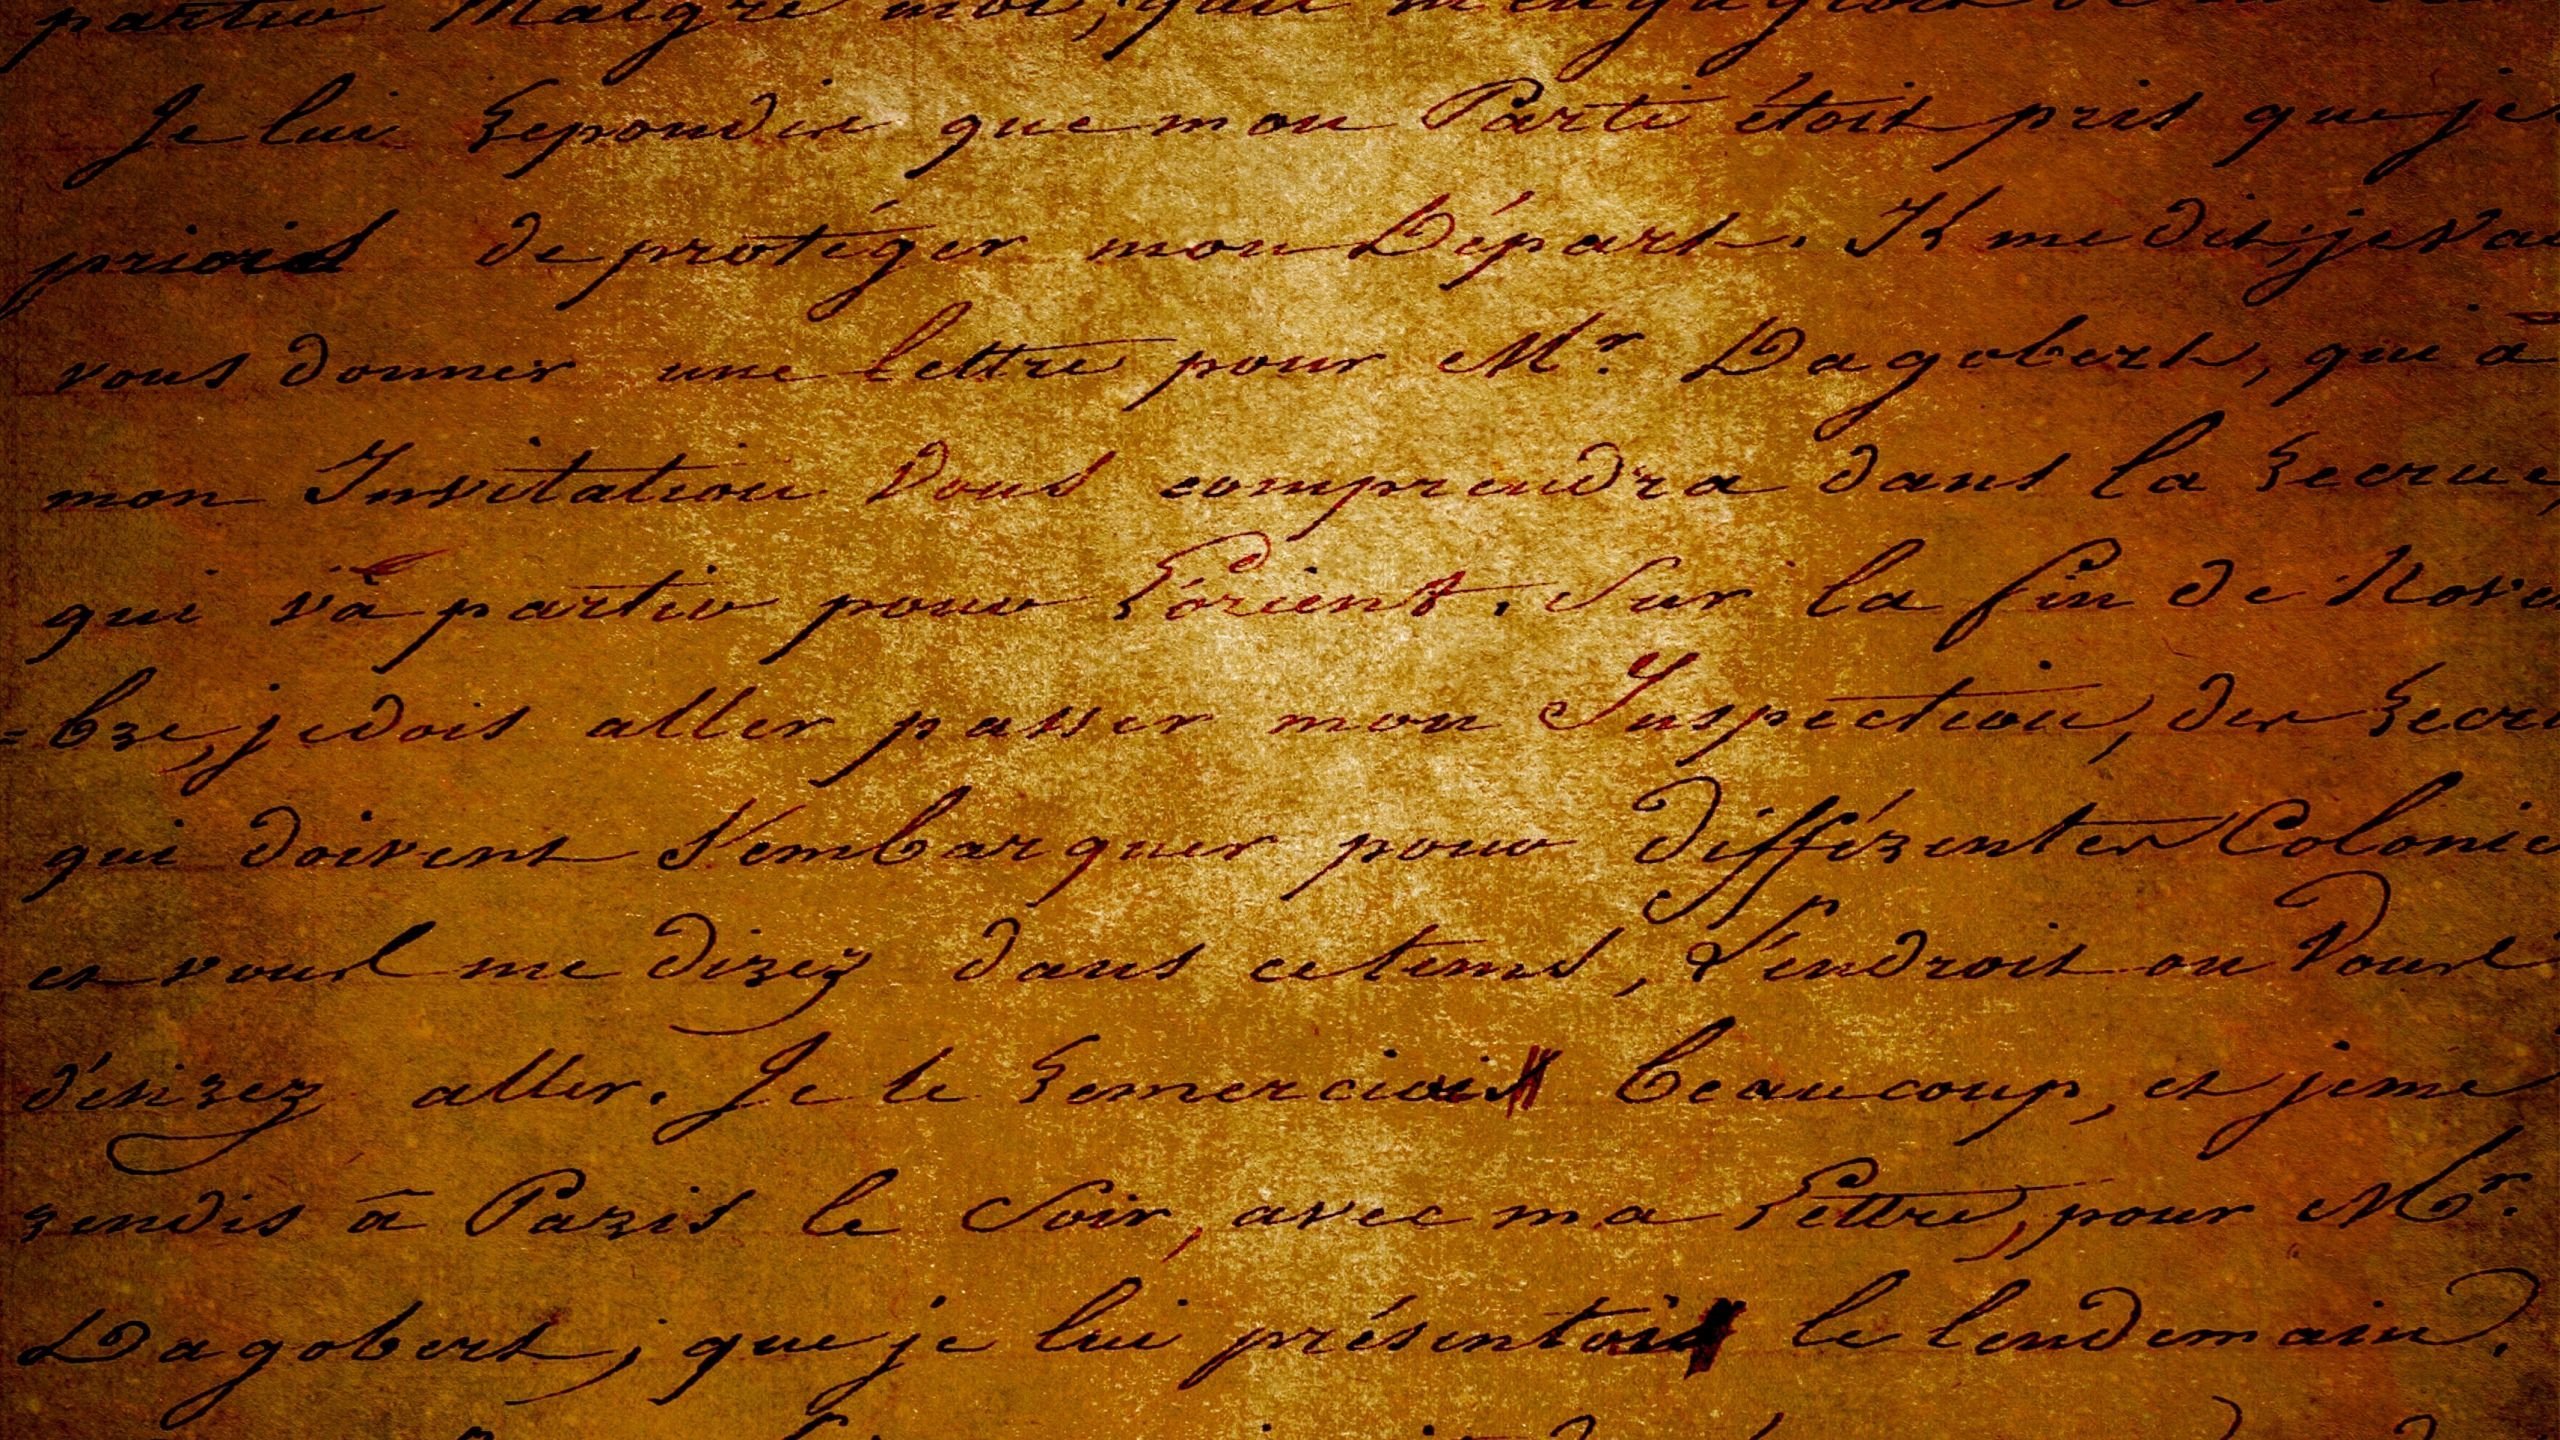 partir Malgré moi, qu'il m'engageois de
Je lui Repondis que mon Parti étoit pris que je
priois de protéger mon Départ. Il me dit, je va
vous donner une lettre pour Mr. Dagobert, qui à
mon Invitation Vous comprendra dans la Recrue,
qui va partir pour L'orient. Sur la fin de Nove
=bre, je dois aller passer mon Inspection, des Recr
qui doivent S'embarquer pour différentes Colonie
et vous me direz dans ce tems, L'endroit ou Vous
désirez aller. Je le Remerciois beaucoup, et je me
rendis à Paris le Soir, avec ma Lettre, pour Mr.
Dagobert, que je lui présentois le lendemain.